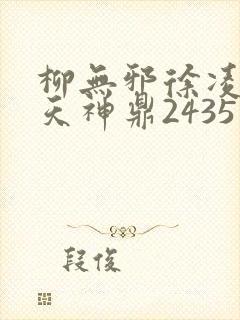 柳無邪徐凌
天神鼎2435
段俊